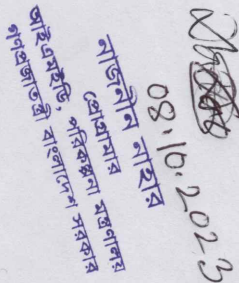 08.10.2023
নাজনীন নাহার
প্রোগ্রামার
আইএমইডি, পরিকল্পনা মন্ত্রণালয়
গণপ্রজাতন্ত্রী বাংলাদেশ সরকার